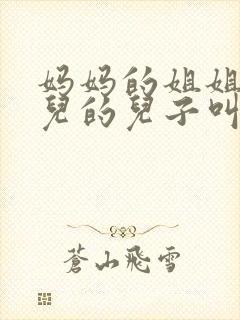 妈妈的姐姐
兒的兒子叫
蒼山飛雪